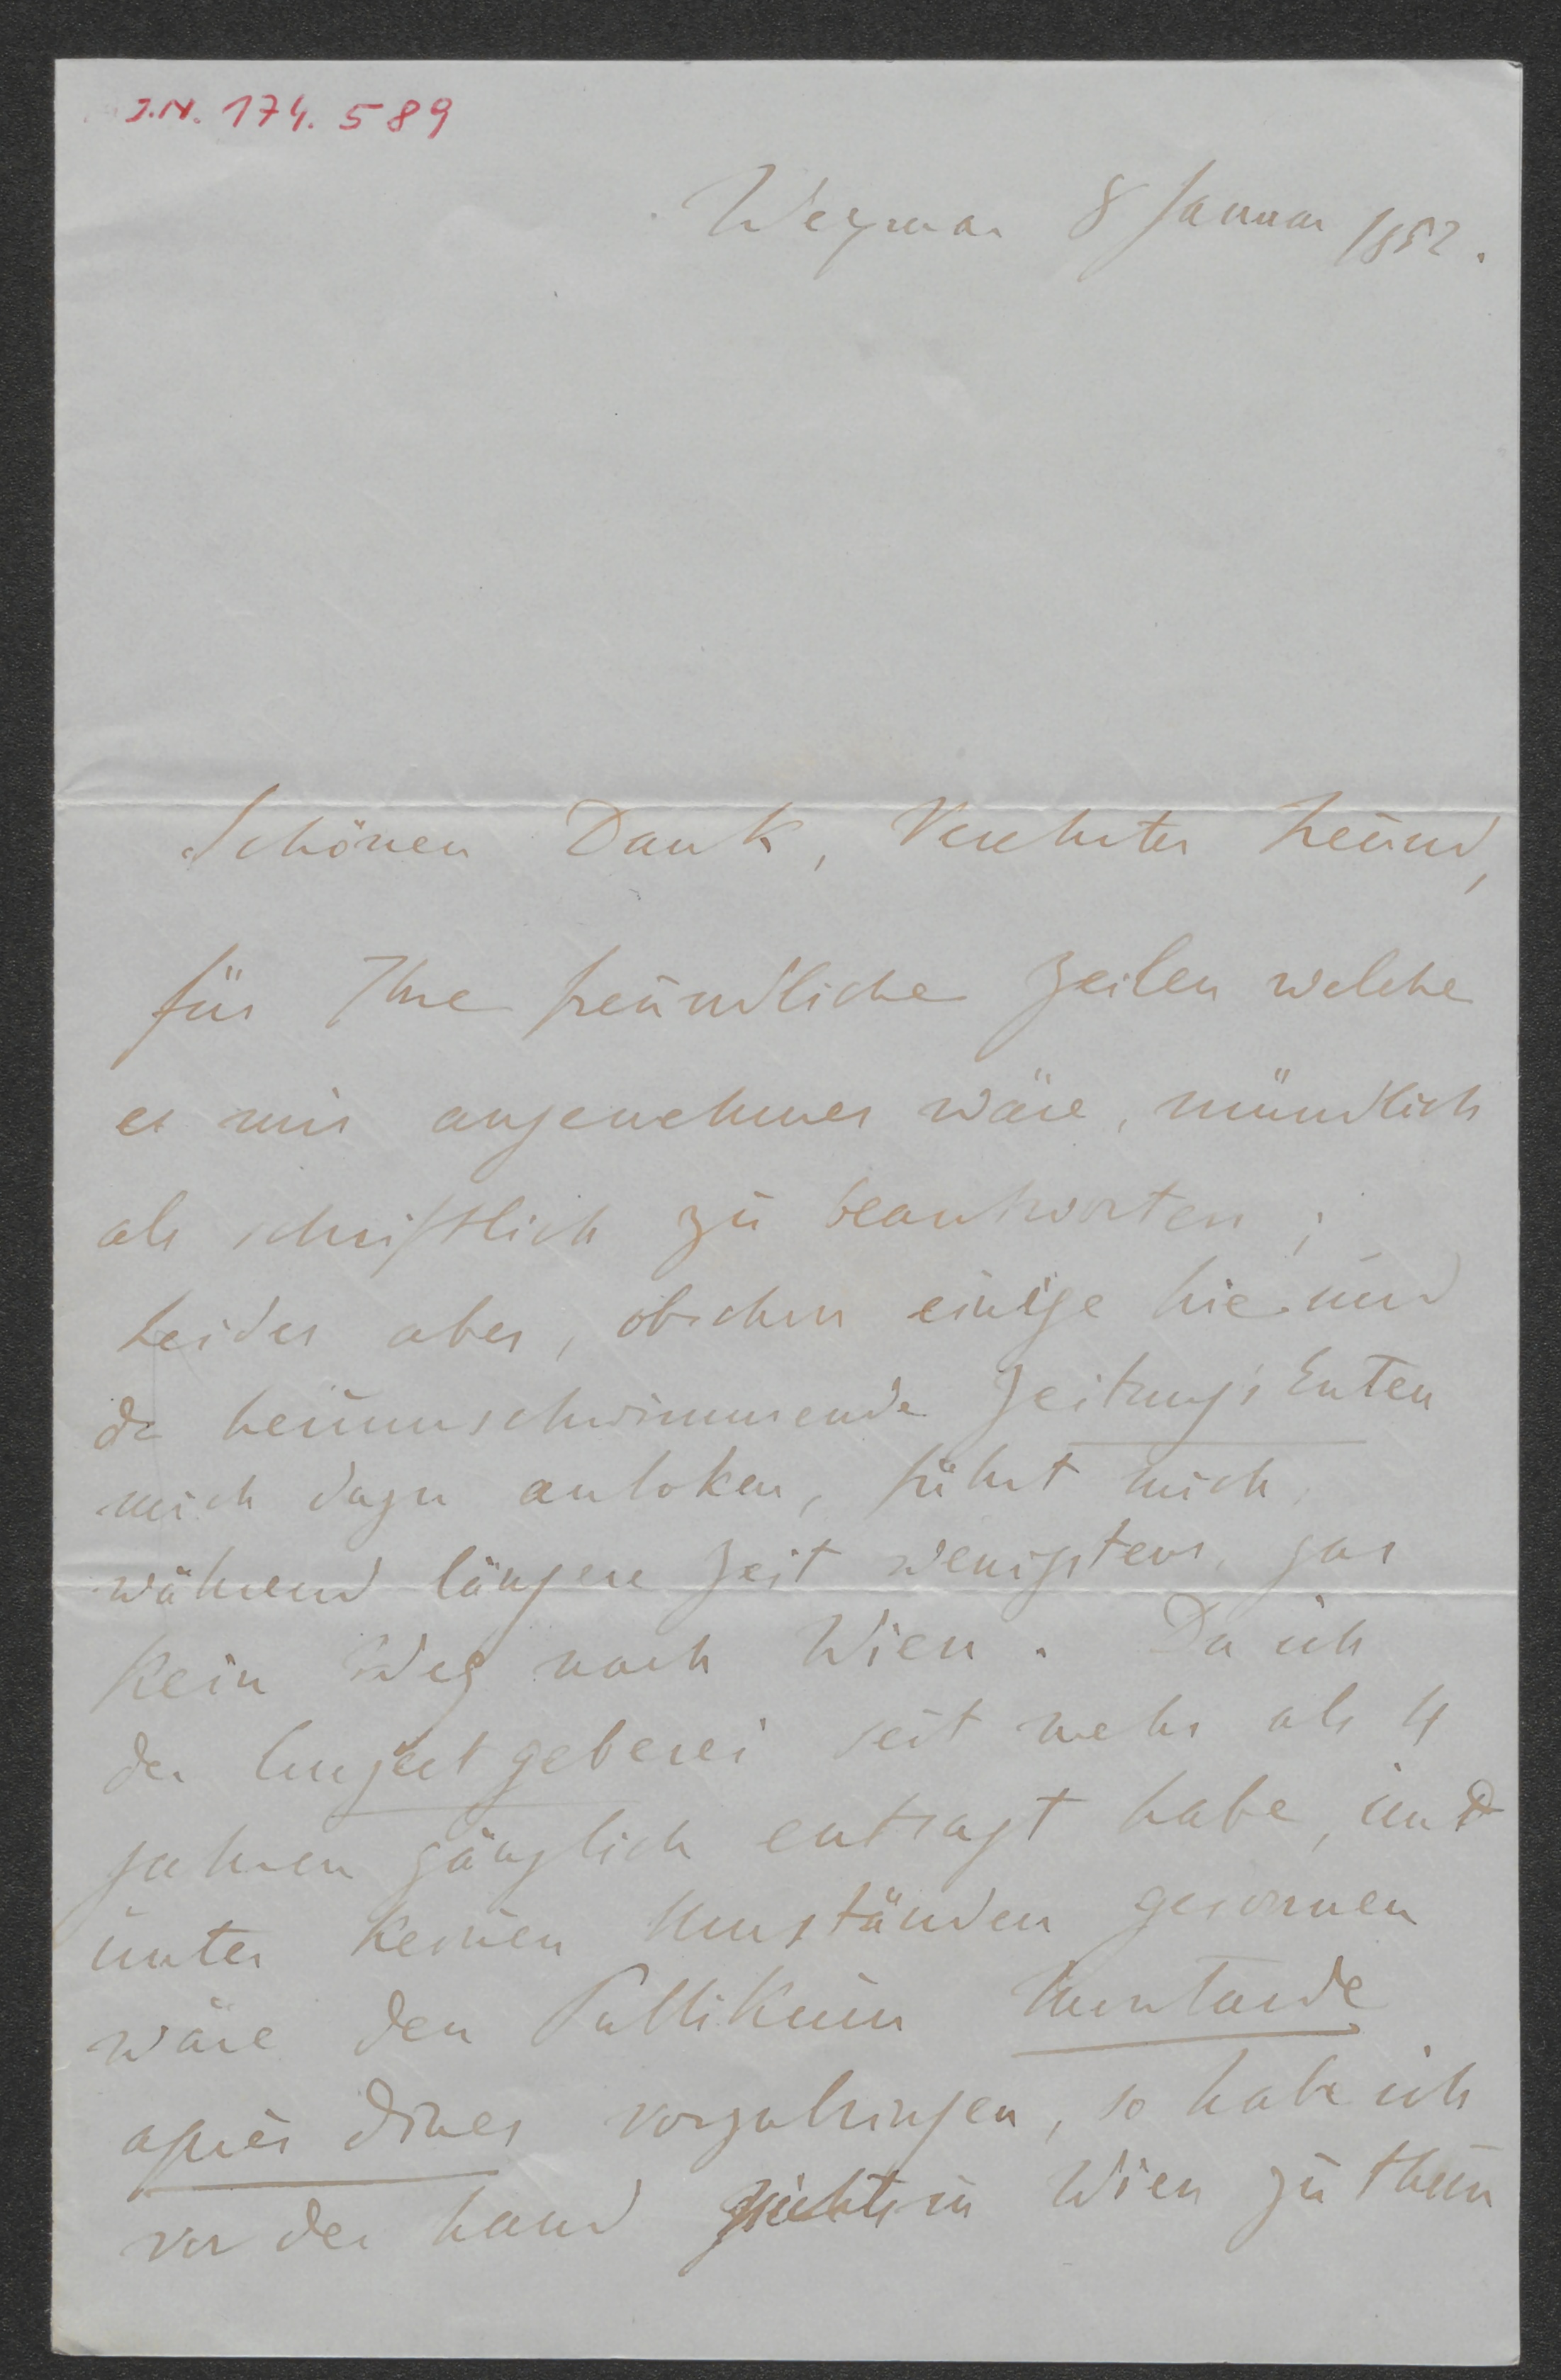 J.N. 174.589
Weymar 8 Januar 1852.
Schönen Dank, Verehrter Freund,
für Ihre freundliche Zeilen welche
es mir angenehmer wäre, mündlich
als schriftlich zu beantworten;
leider aber, obschon einige hie und
da herumschwimmende Zeitungs Enten
mich dazu anloken, führt mich,
während längere Zeit wenigstens, gar
kein Weg nach Wien. Da ich
der Conzert geberei seit mehr als 4
Jahren gänzlich entsagt habe, und
unter keinen Umständen gesonnen
wäre den Publikum Moutarde
après diner vorzubringen, so habe ich
vor der hand nichts in Wien zu thun